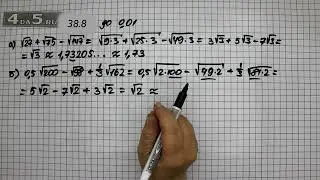 4DA5.RU
38.8 до 0,01
а) √27 + √75 − √147 = √9·3 + √25·3 − √49·3 = 3√3 + 5√3 − 7√3 =
= √3 ≈ 1,73205... ≈ 1,73
Б) 0,5√200 − √98 + 1/3√162 = 0,5√2·100 − √49·2 + 1/3√81·2 =
= 5√2 − 7√2 + 3√2 = √2 ≈